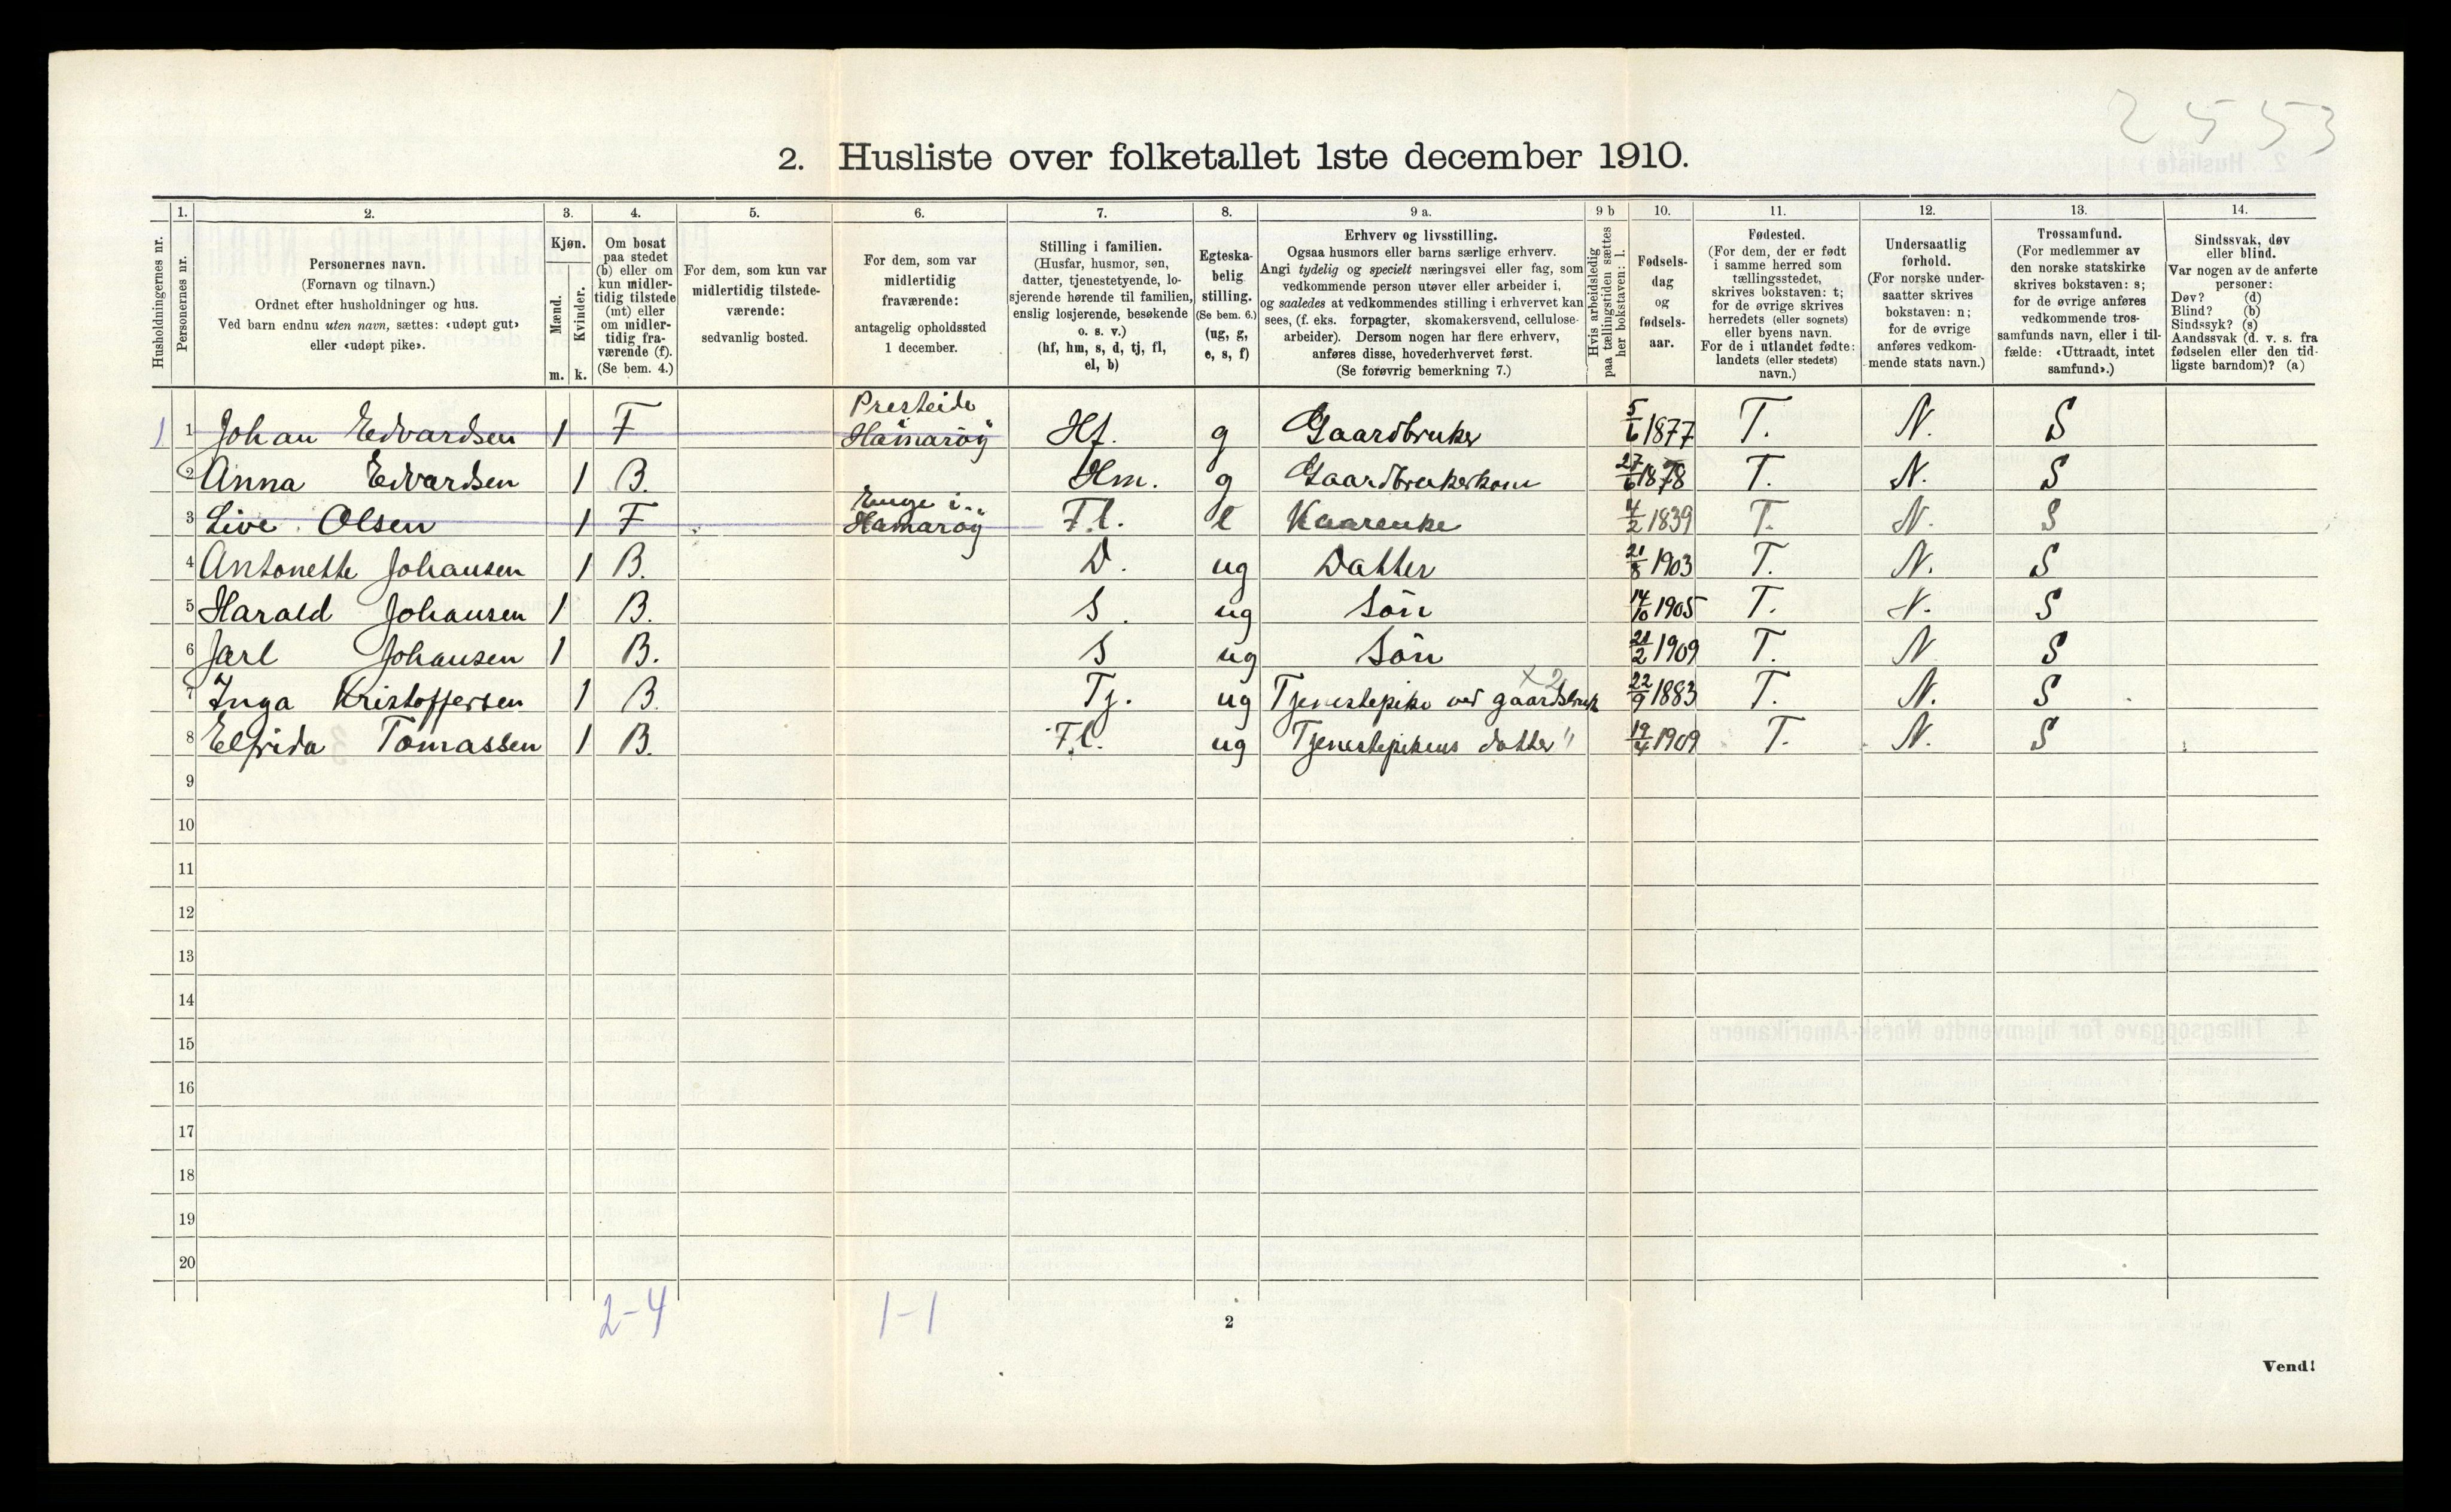 2553
2. Husliste over folketallet 1ste december 1910.
Husholdningernes nr.
1.
Personernes nr.
2.
Personernes navn.
(Fornavn og tilnavn.)
Ordnet efter husholdninger og hus.
Ved barn endnu uten navn, sættes: «udøpt gut»
eller «udøpt pike».
3.
Kjøn.
Mænd.
Kvinder.
m. k.
4.
Om bosat
paa stedet
(b) eller om
kun midler-
tidig tilstede
(mt) eller
om midler-
tidig fra-
værende (f).
(Se bem. 4.)
5.
For dem, som kun var
midlertidig tilstede-
værende:
sedvanlig bosted.
6.
For dem, som var
midlertidig
fraværende:
antagelig opholdssted
1 december.
7.
Stilling i familien.
(Husfar, husmor, søn,
datter, tjenestetyende, lo-
sjerende hørende til familien,
enslig losjerende, besøkende
o. s. v.)
(hf, hm, s, d, tj, fl,
el, b)
8.
Egteska-
belig
stilling.
(Se bem. 6.)
(ug, g,
e, s, f)
9 a.
Erhverv og livsstilling.
Ogsaa husmors eller barns særlige erhverv.
Angi tydelig og specielt næringsvei eller fag, som
vedkommende person utøver eller arbeider i,
og saaledes at vedkommendes stilling i erhvervet kan
sees, (f. eks. forpagter, skomakersvend, cellulose-
arbeider). Dersom nogen har flere erhverv,
anføres disse, hovederhvervet først.
(Se forøvrig bemerkning 7.)
9 b
Hvis arbeidsledig
paa tællingstiden sættes
her bokstaven: l.
10.
Fødsels-
dag
og
fødsels-
aar.
11.
Fødested.
(For dem, der er født
i samme herred som
tællingsstedet,
skrives bokstaven: t;
for de øvrige skrives
herredets (eller sognets)
eller byens navn.
For de i utlandet fødte:
landets (eller stedets)
navn.)
12.
Undersaatlig
forhold.
(For norske under-
saatter skrives
bokstaven: n;
for de øvrige
anføres vedkom-
mende stats navn.)
13.
Trossamfund.
(For medlemmer av
den norske statskirke
skrives bokstaven: s;
for de øvrige anføres
vedkommende tros-
samfunds navn, eller i til-
fælde: «Uttraadt, intet
samfund».)
14.
Sindssvak, døv
eller blind.
Var nogen av de anførte
personer:
Døv? (d)
Blind? (b)
Sindssyk? (s)
Aandssvak (d. v. s. fra
fødselen eller den tid-
ligste barndom)? (a)
Presteide
1 1 Johan Edvardsen 1 F Hamarøy Hf. g Gaardbruker 5/6 1877 T. N. S
2 Anna Edvardsen 1 B. Hm. g Gaardbrukerkone 27/6 1878 T. N. S
Enge i
3 Live Olsen 1 F Hamarøy Fl. e Kaarenke 4/2 1839 T. N. S
4 Antonette Johansen 1 B. D. ug Datter 21/8 1903 T. N. S
5 Harald Johansen 1 B. S. ug Søn 14/10 1905 T. N. S
6 Jarl Johansen 1 B. S ug Søn 21/2 1909 T. N S
7 Inga Kristoffersen 1 B. Tj. ug Tjenestepike ved gaardsbruk 22/9 1883 T. N. S
8 Elfrida Tomassen 1 B. Fl. ug Tjenestepikens datter " 19/4 1909 T. N. S
9
10
11
12
13
14
15
16
17
18
19
20
2-4 1-1
2
Vend!